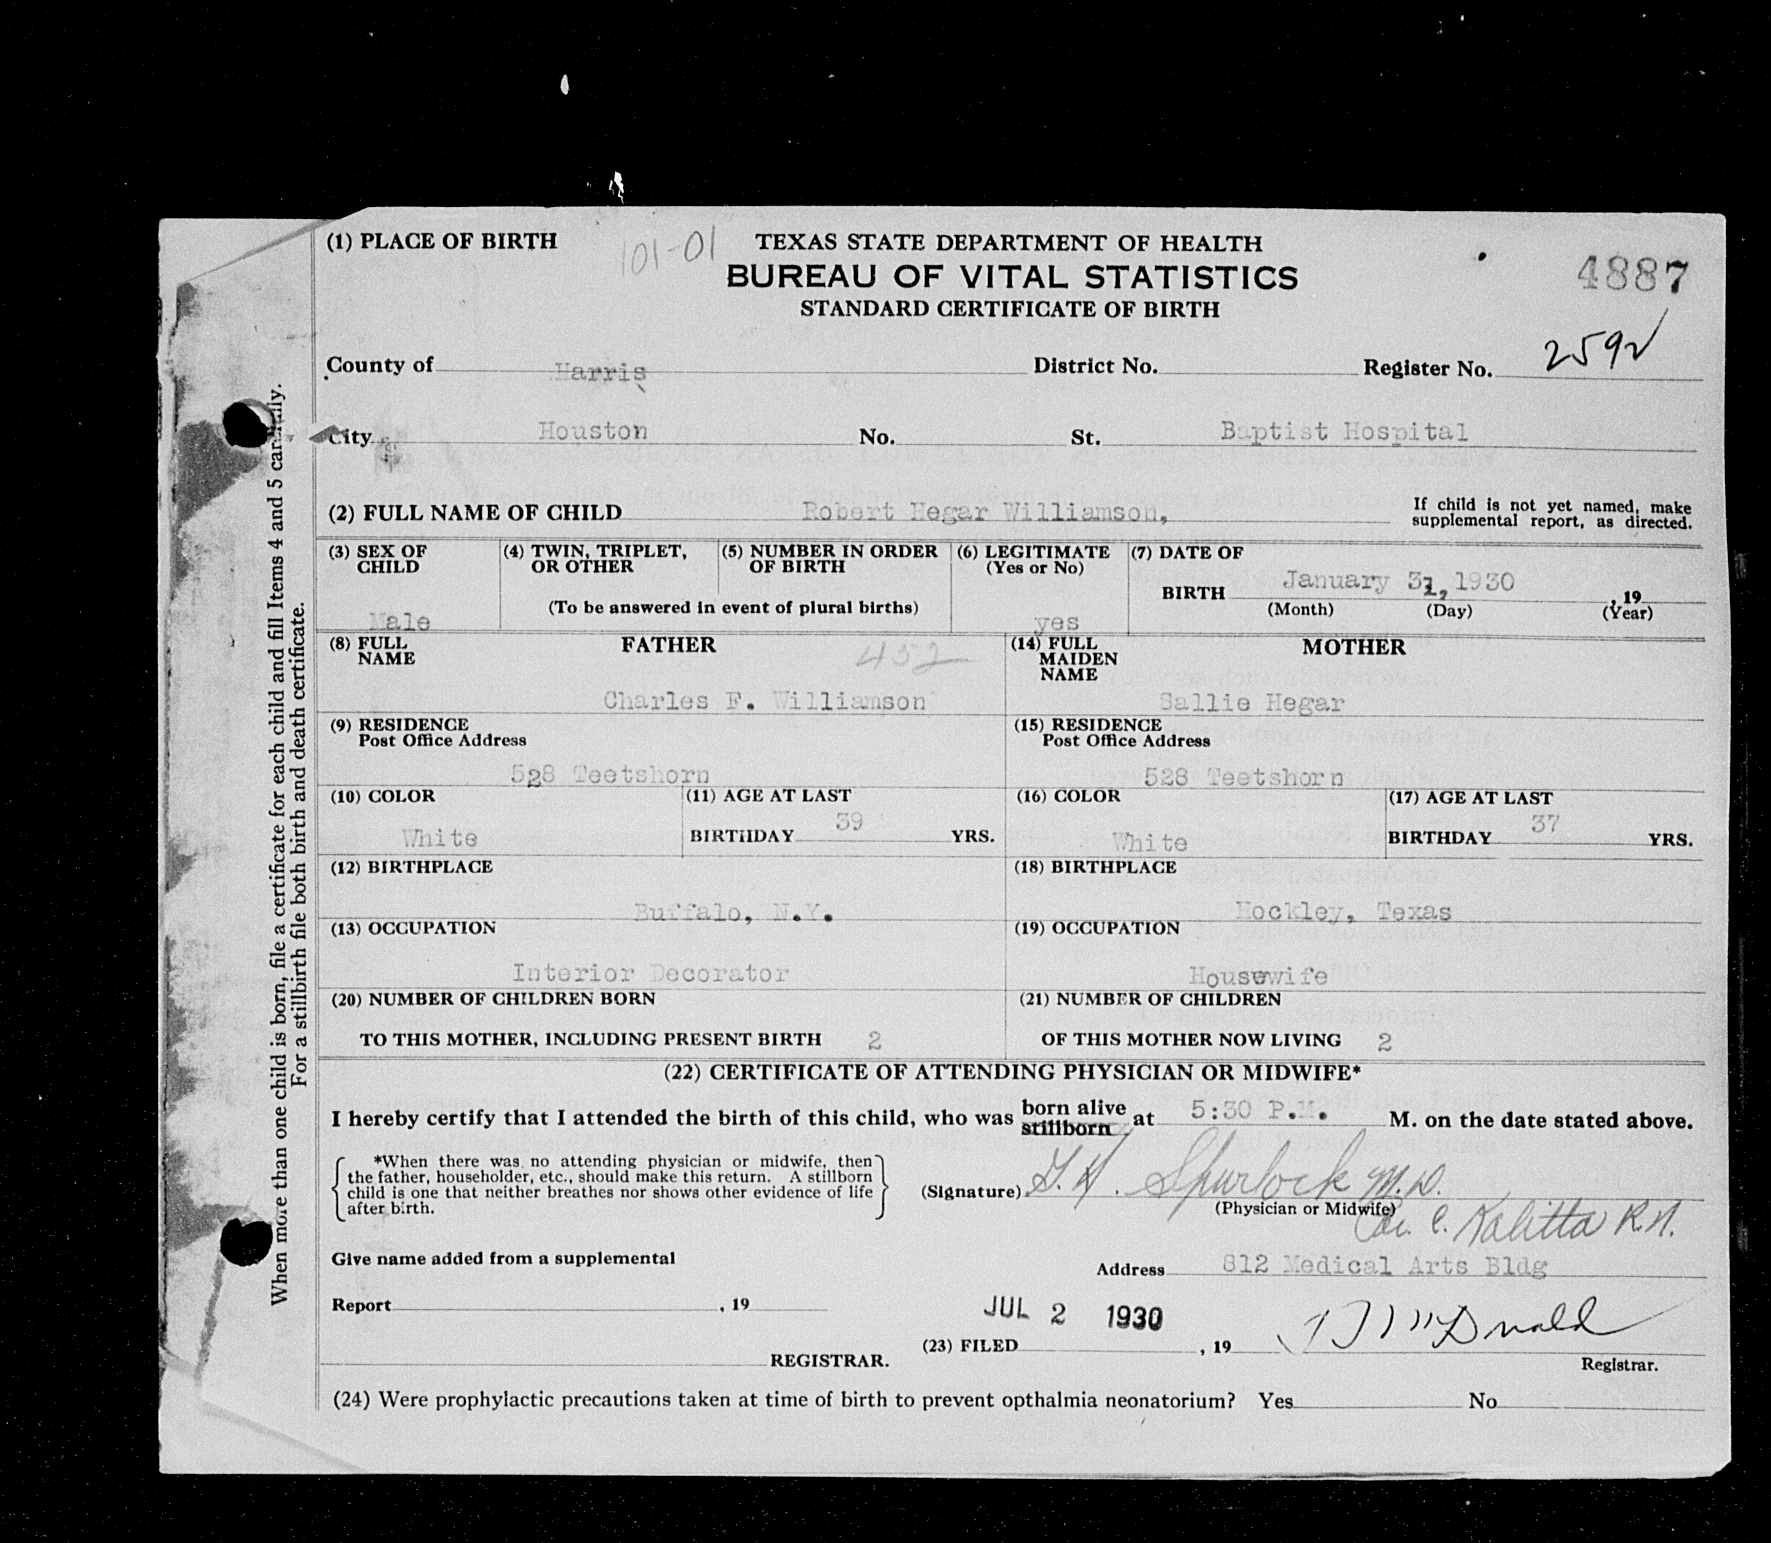 (1) PLACE OF BIRTH
101-01
TEXAS STATE DEPARTMENT OF HEALTH
BUREAU OF VITAL STATISTICS
STANDARD CERTIFICATE OF BIRTH
4887
County of Harris District No. Register No. 2592
City Houston No. St. Baptist Hospital
(2) FULL NAME OF CHILD Robert Hegar Williamson,
If child is not yet named, make
supplemental report, as directed.
(3) SEX OF
CHILD
Male
(4) TWIN, TRIPLET,
OR OTHER
(5) NUMBER IN ORDER
OF BIRTH
(To be answered in event of plural births)
(6) LEGITIMATE
(Yes or No)
yes
(7) DATE OF
BIRTH January 31, 1930 , 19
(Month) (Day) (Year)
(8) FULL
NAME
FATHER
452
Charles F. Williamson
(14) FULL
MAIDEN
NAME
MOTHER
Sallie Hegar
(9) RESIDENCE
Post Office Address
528 Teetshorn
(15) RESIDENCE
Post Office Address
528 Teetshorn
(10) COLOR
White
(11) AGE AT LAST
BIRTHDAY 39 YRS.
(16) COLOR
White
(17) AGE AT LAST
BIRTHDAY 37 YRS.
(12) BIRTHPLACE
Buffalo, N.Y.
(18) BIRTHPLACE
Hockley, Texas
(13) OCCUPATION
Interior Decorator
(19) OCCUPATION
Housewife
(20) NUMBER OF CHILDREN BORN
TO THIS MOTHER, INCLUDING PRESENT BIRTH 2
(21) NUMBER OF CHILDREN
OF THIS MOTHER NOW LIVING 2
(22) CERTIFICATE OF ATTENDING PHYSICIAN OR MIDWIFE*
I hereby certify that I attended the birth of this child, who was born alive stillborn at 5:30 P.M. M. on the date stated above.
*When there was no attending physician or midwife, then
the father, householder, etc., should make this return. A stillborn
child is one that neither breathes nor shows other evidence of life
after birth.
(Signature) Spurlock M.D.
(Physician or Midwife)
C. Kalitta R.N.
Give name added from a supplemental
Address 812 Medical Arts Bldg
Report , 19
JUL 2 1930
(23) FILED , 19
Registrar.
REGISTRAR.
(24) Were prophylactic precautions taken at time of birth to prevent opthalmia neonatorium? Yes No
When more than one child is born, file a certificate for each child and fill Items 4 and 5 carefully.
For a stillbirth file both birth and death certificate.